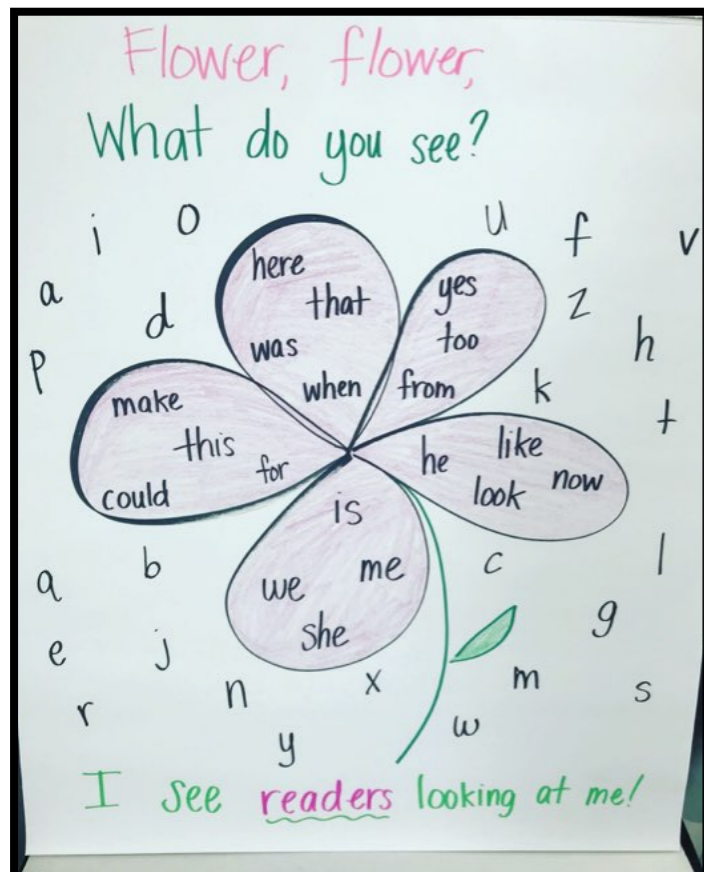 Flower, flower,
What do you see?
i o u f v
a d z h
p k t
here
that
was
when
yes
too
from
make
this
for
could
he like
look now
is
we me
she
q b c l
e j g
r n x m s
y w
I see readers looking at me!